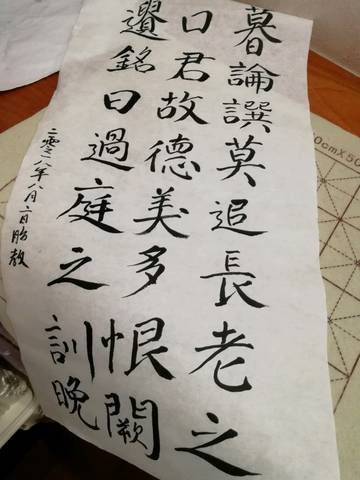 暮論譔莫追長老之
口君故德美多恨闕
遺銘曰過庭之訓晚
二零一八年八月
0cm×50